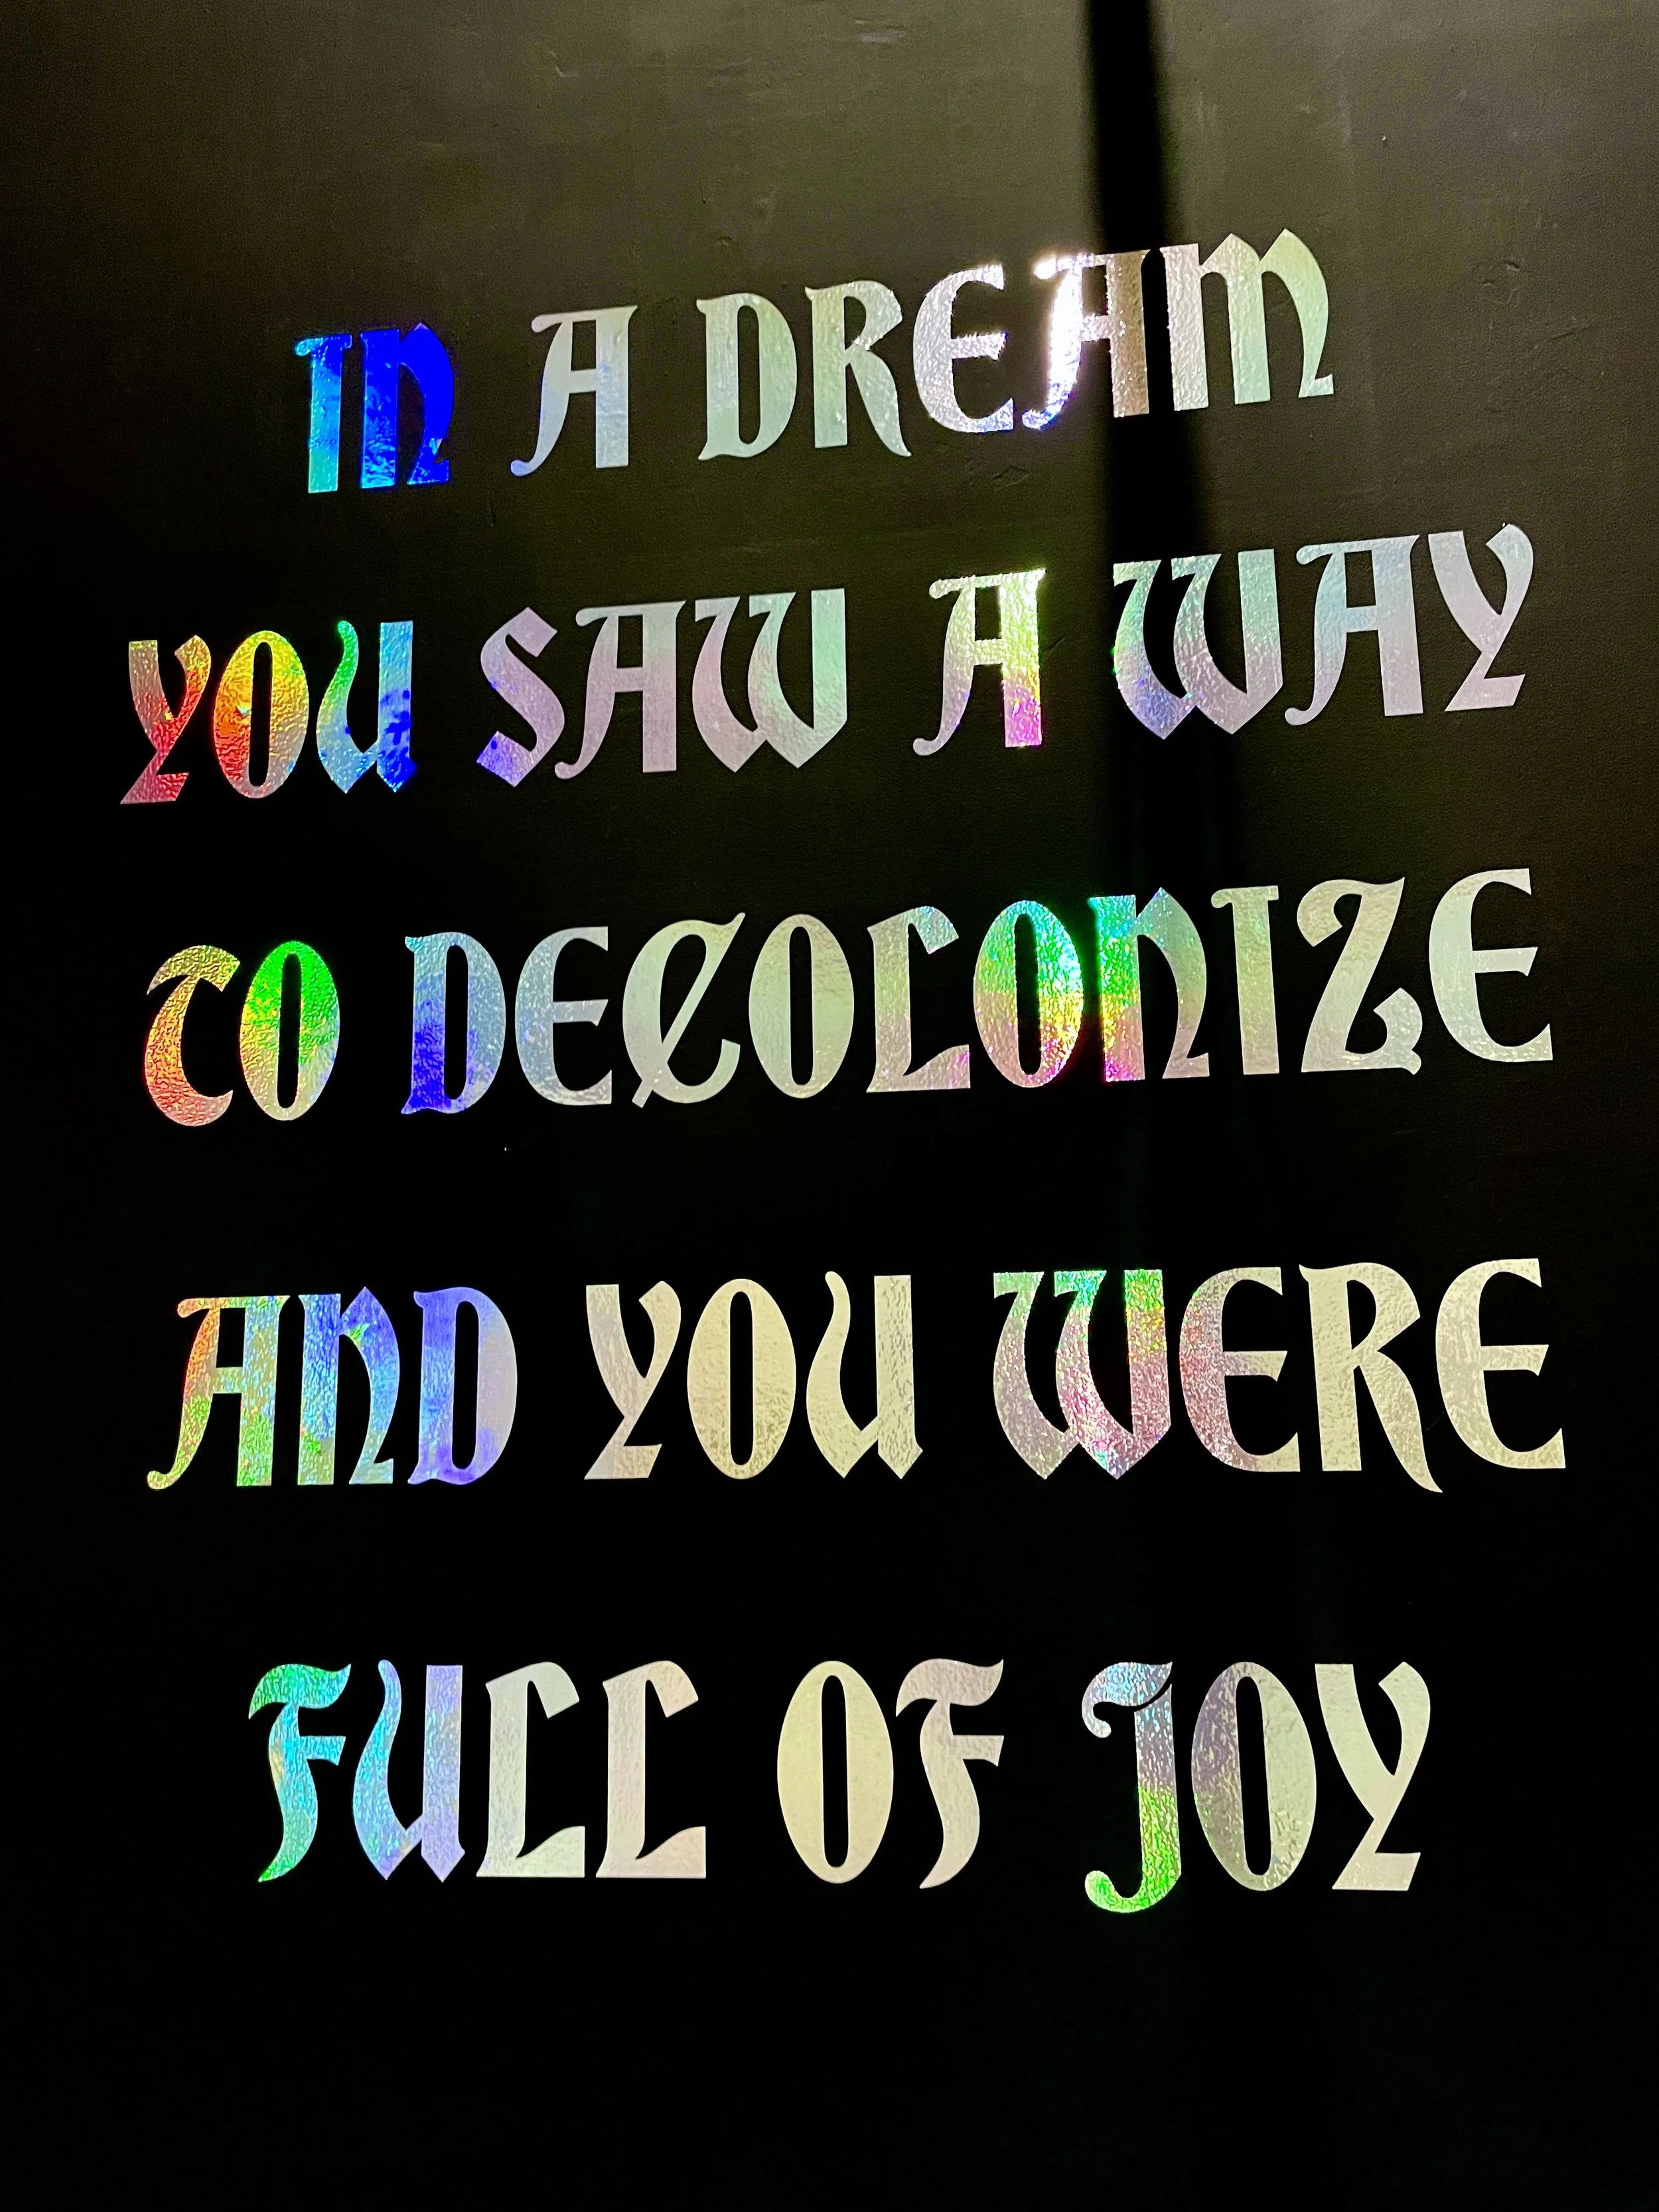 IN A DREAM
YOU SAW A WAY
TO DECOLONIZE
AND YOU WERE
FULL OF JOY